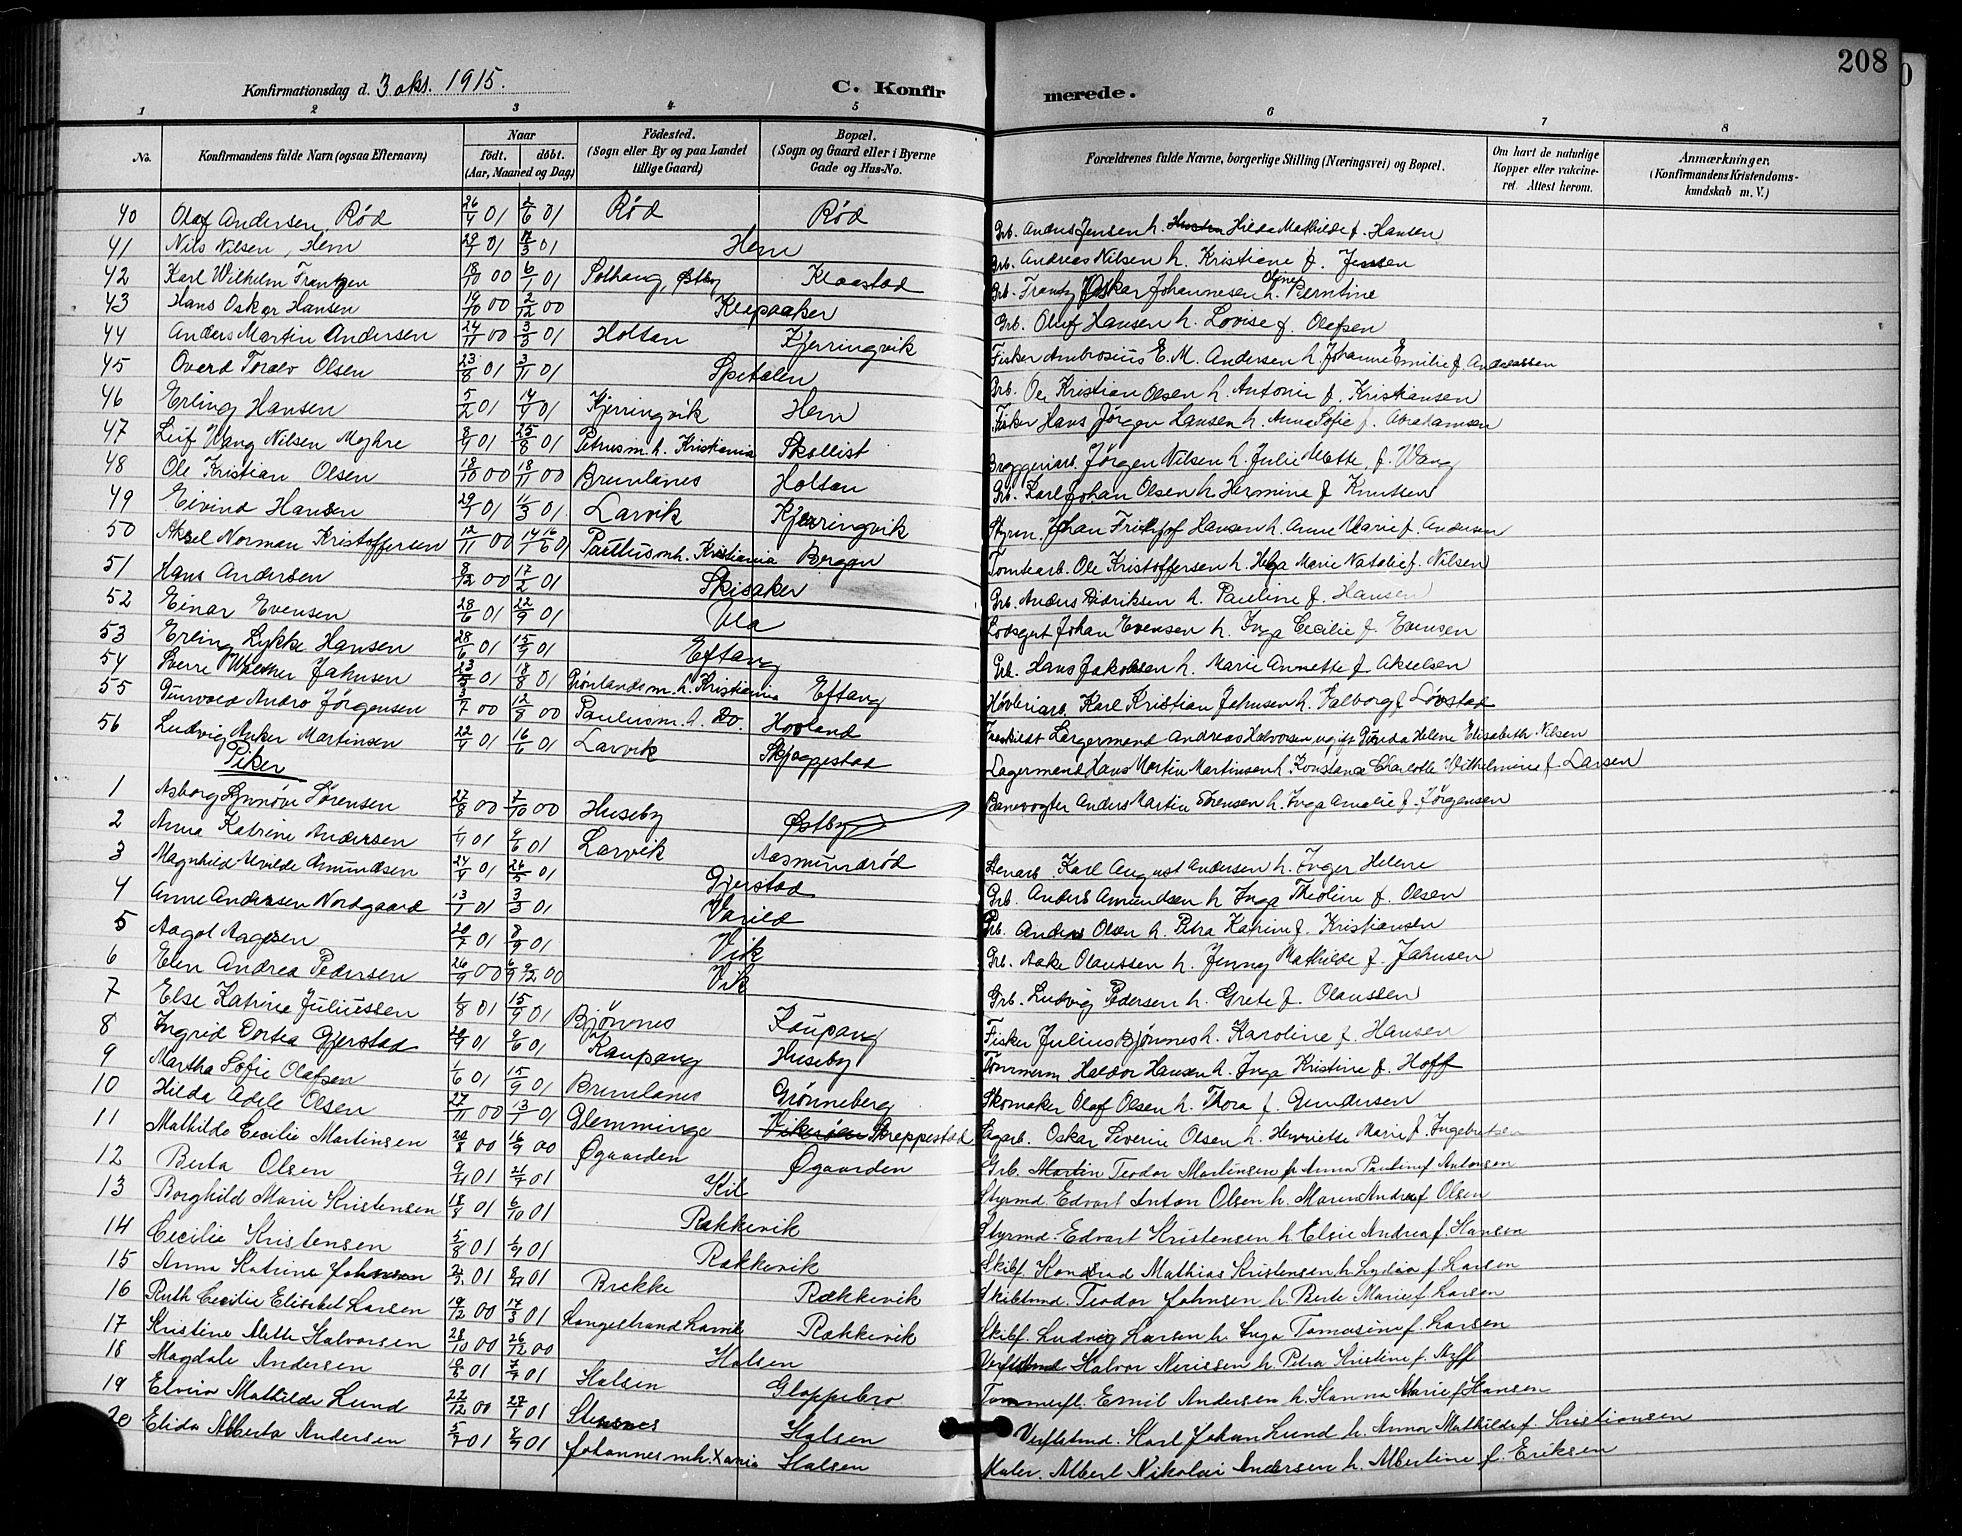 208
Konfirmationsdag d. 3 okt. 1915.
C. Konfirmerede.
1 2 3 4 5 6 7 8
No.
Konfirmandens fulde Navn (ogsaa Efternavn)
Naar
födt. döbt.
(Aar, Maaned og Dag)
Födested.
(Sogn eller By og paa Landet tillige Gaard)
Bopæl.
(Sogn og Gaard eller i Byerne Gade og Hus-No.
Forældrenes fulde Navne, borgerlige Stilling (Næringsvei) og Bopæl.
Om havt de naturlige Kopper eller vakcineret. Attest herom.
Anmærkninger,
(Konfirmandens Kristendomskundskab m. V.)
40 Olaf Andersen, Röd 26/4 01 2/6 01 Röd Röd Grb. Anders Jensen h. Hilda Mathilde f. Hansen
41 Nils Nilsen, Hem 29/1 01 17/3 01 Hem Grb. Andreas Nilsen h. Kristiane f. Jensen
42 Karl Wilhelm Frantzen 18/10 00 6/1 01 Solhaug, Østby Klaastad Grb. Frantz Oskar Johannesen h. Oline Berntine
43 Hans Oskar Hansen 19/10 00 2/12 00 Klepaaker Grb. Oluf Hansen h. Lovise f. Olafsen
44 Anders Martin Andersen 24/11 00 3/3 01 Holtan Kjerringvik Fisker Ambrosius E. M. Andersen h. Johanne Emilie f. Andreassen
45 Overd Toralv Olsen 23/8 01 3/11 01 Spetalen Grb. Ole Kristian Olsen h. Antonie f. Kristiansen
46 Erling Hansen 5/2 01 14/4 01 Kjerringvik Hem Fisker Hans Jörgen Hansen h. Anna Sofie f. Abrahamsen
47 Leif Wang Nilsen Meyhre 8/4 01 25/8 01 Petrusm. h. Kristiania Skallist Bryggeriarb. Jörgen Nilsen h. Julie Mette f. Wang
48 Ole Kristian Olsen 18/10 00 18/11 00 Brunlanes Holtan Grb. Karl Johan Olsen h. Hermine f. Knutsen
49 Eivind Hansen 29/1 01 11/3 01 Larvik Kjerringvik Styrm. Johan Fridtjof Hansen h. Anne Marie f. Andersen
50 Aksel Norman Kristoffersen 12/11 00 Paulus mh. Kristiania Bergan Tomtearb. Ole Kristoffersen h. Helga Marie Natalie f. Nilsen
51 Hans Andersen 8/12 00 17/2 01 Skisaker Grb. Anders Didriksen h. Pauline f. Hansen
52 Einar Evensen 28/6 01 22/9 01 Ula Lodsgut Johan Evensen h. Inga Cecilie f. Evensen
53 Erling Lykke Hansen 28/6 01 15/9 01 Eftang Grb. Hans Jakobsen h. Marie Annette f. Akselsen
54 Sverre Walther Jahnsen 23/5 01 18/8 01 Grönlandsm. h. Kristiania Eftang Høvleriarb. Karl Kristian Jahnsen h. Valborg f. Løvstad
55 Thorvald Andro Jörgensen 3/7 00 12/8 00 Paulusm. h. Do. Hovland Fraskildt Lagermand Andreas Halvorsen ugift Helene Elisabeth Nilsen
56 Ludvig Anker Martinsen 22/4 01 16/6 01 Larvik Skjæggestad Lagermand Hans Martin Martinsen h. Konstance Charlotte Wilhelmine f. Larsen
Piker
1 Asborg Synnöve Sörensen 27/8 00 7/10 00 Huseby Østby Banevogter Anders Martin Sörensen h. Inga Amalie f. Jörgensen
2 Anna Katrine Andersen 1/4 01 9/6 01 Larvik Aasmundröd Stenarb. Karl August Andersen h. Inger Helene
3 Magnhild Alvilde Amundsen 24/4 01 26/5 01 Gjerstad Grb. Anders Amundsen h. Inga Theoline f. Olsen
4 Anne Andersen Nordgaard 13/1 01 3/3 01 Varild Grb. Anders Olsen h. Petra Katrine f. Kristiansen
5 Aagot Aagesen 20/7 01 8/9 01 Vik Grb. Aake Olaussen h. Jenny Mathilde f. Jahnsen
6 Elen Andrea Pedersen 26/9 00 9/12 00 Vik Grb. Ludvig Pedersen h. Grete f. Olaussen
7 Else Katrine Juliussen 1/8 01 15/9 01 Bjönnes Kaupang Fisker Julius Bjönnes h. Karoline f. Hansen
8 Ingrid Dortea Gjerstad 20/4 01 9/6 01 Kaupang Huseby Tömmerm Haldor Hansen h. Inga Kristine f. Hoff
9 Martha Sofie Olafsen 1/6 01 15/9 01 Brunlanes Grönneberg Skomaker Olaf Olsen h. Thora f. Gundersen
10 Hilda Adele Olsen 27/11 00 13/1 01 Glemminge Skreppestad Sagarb. Oskar Severin Olsen h. Henriette Marie f. Ingebretsen
11 Mathilde Cecilie Martinsen 20/8 00 16/9 00 Øgaarden Øgaarden Grb. Martin Teodor Martinsen h. Anna Pauline f. Antonsen
12 Berta Olsen 9/4 01 21/7 01 Kil Styrmd. Edvart Anton Olsen h. Maren Andrea f. Olsen
13 Borghild Marie Kristensen 18/8 01 6/10 01 Rækkevik Styrmd. Edvart Kristensen h. Elsie Andrea f. Hansen
14 Cecilie Kristensen 5/8 01 1/9 01 Rækkevik Skibf. Konrad Mathias Kristensen h. Lydia f. Larsen
15 Anna Katrine Johnsen 2/3 01 8/4 01 Brekke Rækkevik Skibstmd. Teodor Johnsen h. Berte Marie f. Larsen
16 Ruth Cecilie Elisabet Larsen 19/12 00 17/3 01 Langestrand Larvik Rækkevik Skibf. Ludvig Larsen h. Inga Tomasine f. Larsen
17 Kristine Mette Halvorsen 28/10 00 26/12 00 Halsen Halvor Nirissen h. Petra Kristine f.
18 Magdale Andersen 10/5 01 7/7 01 Halsen Gloppebro Tommerfl. Emil Andersen h. Hanna Marie f. Hansen
19 Elvira Mathilde Lund 22/12 00 27/1 01 Stensnes Halsen Verftstmd. Karl Johan Lund h. Anna Mathilde f. Kristiansen
20 Elida Alberta Andersen 5/7 01 8/9 01 Johannes mh. Xania Halsen Maler. Albert Nikolai Andersen h. Albertine f. Eriksen